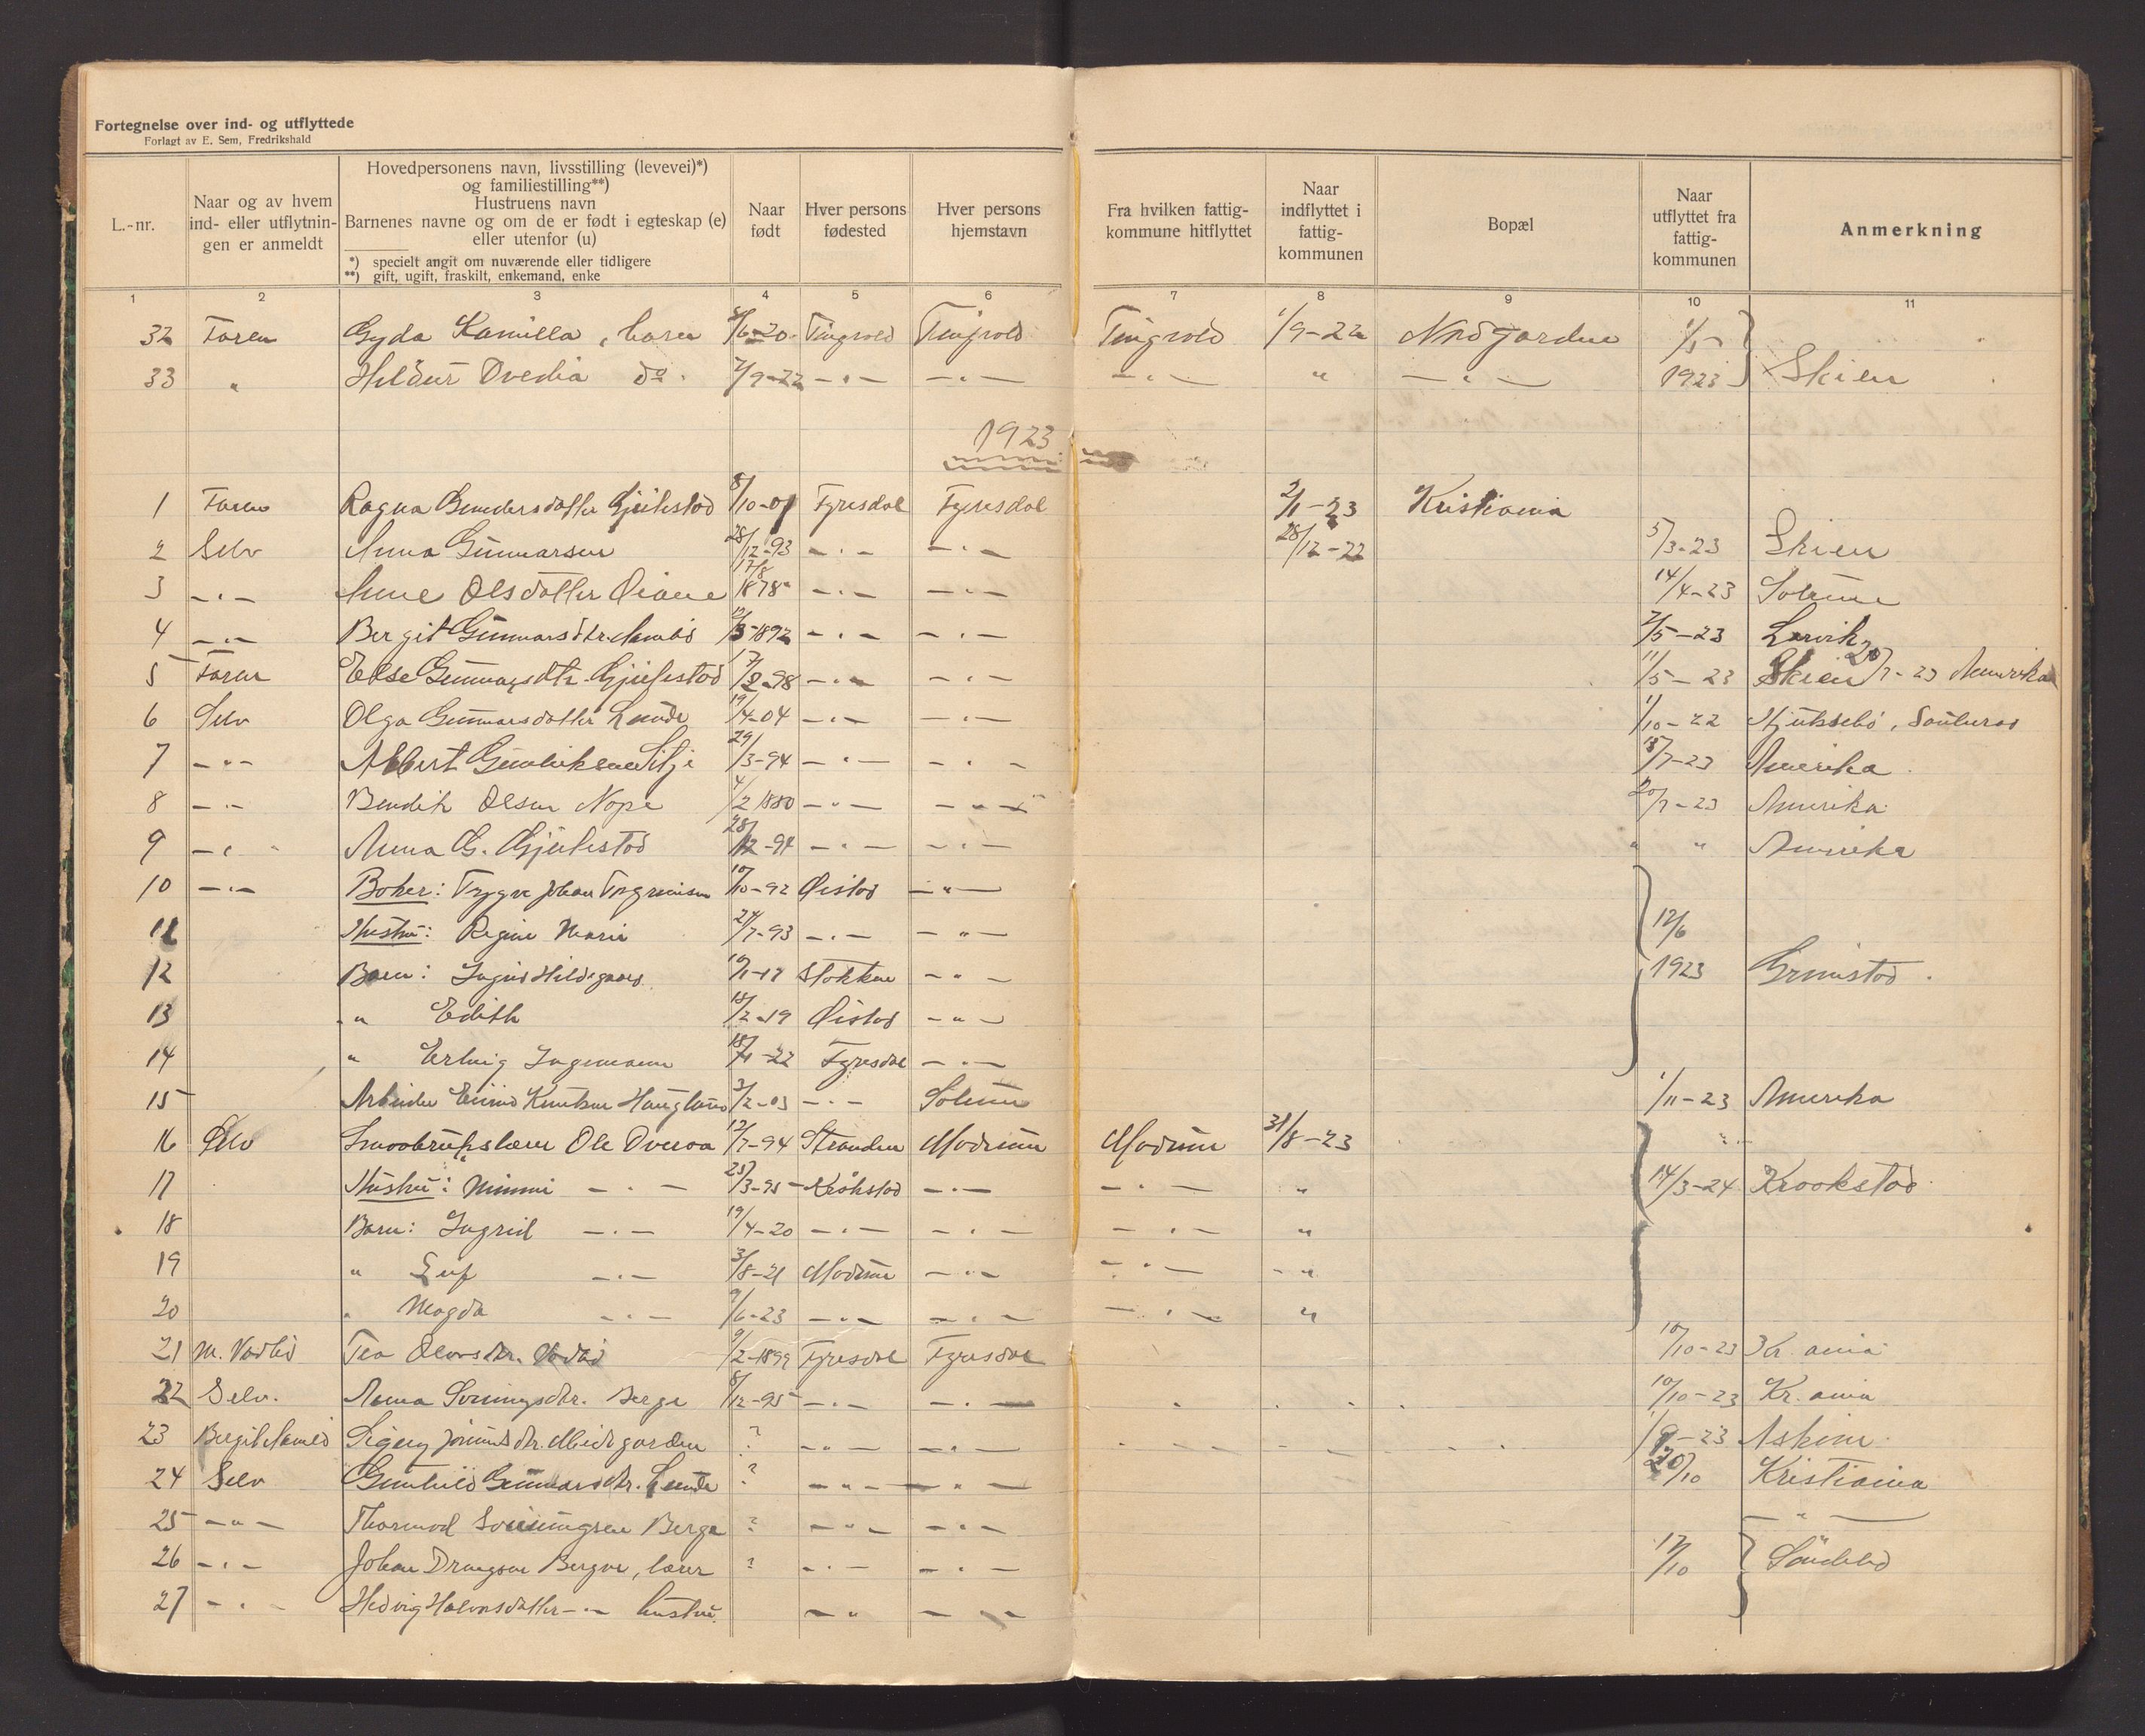 Fortegnelse over ind- og utflyttede
Forlagt av E. Sem, Fredrikshald
L.-nr.
Naar og av hvem ind- eller utflytnin-gen er anmeldt
Hovedpersonens navn, livsstilling (levevei)*)
og familiestilling**)
Hustruens navn
Barnenes navne og om de er født i egteskap (e)
eller utenfor (u)
*) specielt angit om nuværende eller tidligere
**) gift, ugift, fraskilt, enkemand, enke
Naar født
Hver persons fødested
Hver persons hjemstavn
Fra hvilken fattig-kommune hitflyttet
Naar indflyttet i fattig-kommunen
Bopæl
Naar utflyttet fra fattig-kommunen
Anmerkning
1 2 3 4 5 6 7 8 9 10 11
32 Faren Gyda Kamilla, barn /6-20 Tingvold Tingvold Tingvold 1/9-22 Nordgarden 1/5
33 " Hildur Ovedia do. 2/9-22 -"- -"- -"- " -"- 1923 Skien
1923
1 Faren Ragna 8/10-01 Fyresdal Fyresdal 2/1-23 Kristiania
2 Selv Anna Gunnarsen 28/12-93 -"- -"- 28/12-22 5/3-23 Skien
3 -"- Anne Olsdatter 17/8 1878 -"- -"- 14/4-23 Solum
4 -"- Bergit Gunnarsdtr. 1892 -"- -"- 2/5-23 Larvik
5 Faren Else Gunnarsdtr. 17/2-98 -"- -"- 11/5-23 Skien 20/7-23 Amerika
6 Selv Olga Gunnarsdatter Lunde 19/4-04 -"- -"- 1/10-22
7 -"- Albert 29/3-94 -"- -"- 18/7-23 Amerika
8 -"- Bendik Olsen Nope 4/2 1880 -"- -"- 20/7-23 Amerika
9 -"- Anna G. 28/12-94 -"- -"- " " Amerika
10 -"- Baker: Trygve Johan 10/10-92 Øistad -"-
11 Hustru: Regine Marie 24/7-93 -"- -"- 12/6
12 Barn: Ingrid Hildegaard 19/1-17 Stokken -"- 1923 Grimstad
13 " Edith 18/2-19 Øistad -"-
14 " Erling Ingemann 18/1-22 Fyresdal -"-
15 Arbeider Eivind Knutsen Haugland 3/2-03 -"- Solum 1/11-23 Amerika
16 Selv Smaabrukslærer Ole 12/7-94 Stranden Modum Modum 31/8-23 "
17 Hustru: Mimmi -"- 23/3-95 Kråkstad -"- -"- " 14/3-24 Kraakstad
18 Barn: Ingrid -"- 19/4-20 -"- -"- -"- "
19 " Leif -"- 3/8-21 Modum -"- -"- "
20 " Magda -"- 9/6-23 -"- -"- -"- "
21 M. Vadlid Tea Olavsdtr. 9/2-1899 Fyresdal Fyresdal 10/10-23 Kr.ania
22 Selv. Anna Berge 8/12-95 -"- -"- 10/10-23 Kr.ania
23 Signy Midtgarden ? -"- -"- 1/9-23 Askim
24 Selv Gunhild Gunnarsdtr. Lunde ? -"- -"- 20/10 Kristiania
25 -"- Thormod Berge ? -"- -"- -"-
26 -"- Johan Bergve, lærer ? -"- -"- 17/10
27 -"- Hedvig Halvorsdatter -"- hustru. -"- -"-